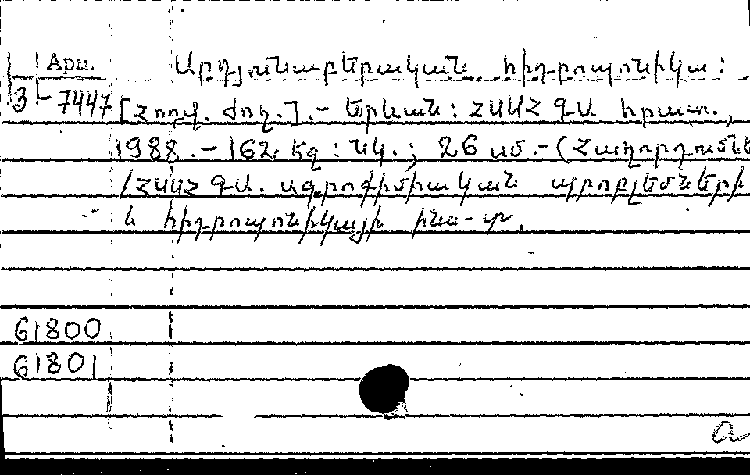 Арм. Արդյունաբերական հիդրոպոնիկա:
3-7447 [Հոդվ. ժող.].- Երևան: ՀՍՍՀ ԳԱ հրատ.,
1988.-162 էջ: նկ.; 26 սմ.-(Հաղորդումնե
/ՀՍՍՀ ԳԱ. ագրոքիմիական պրոբլեմների
և հիդրոպոնիկայի ինս-տ.
61800
61801
a